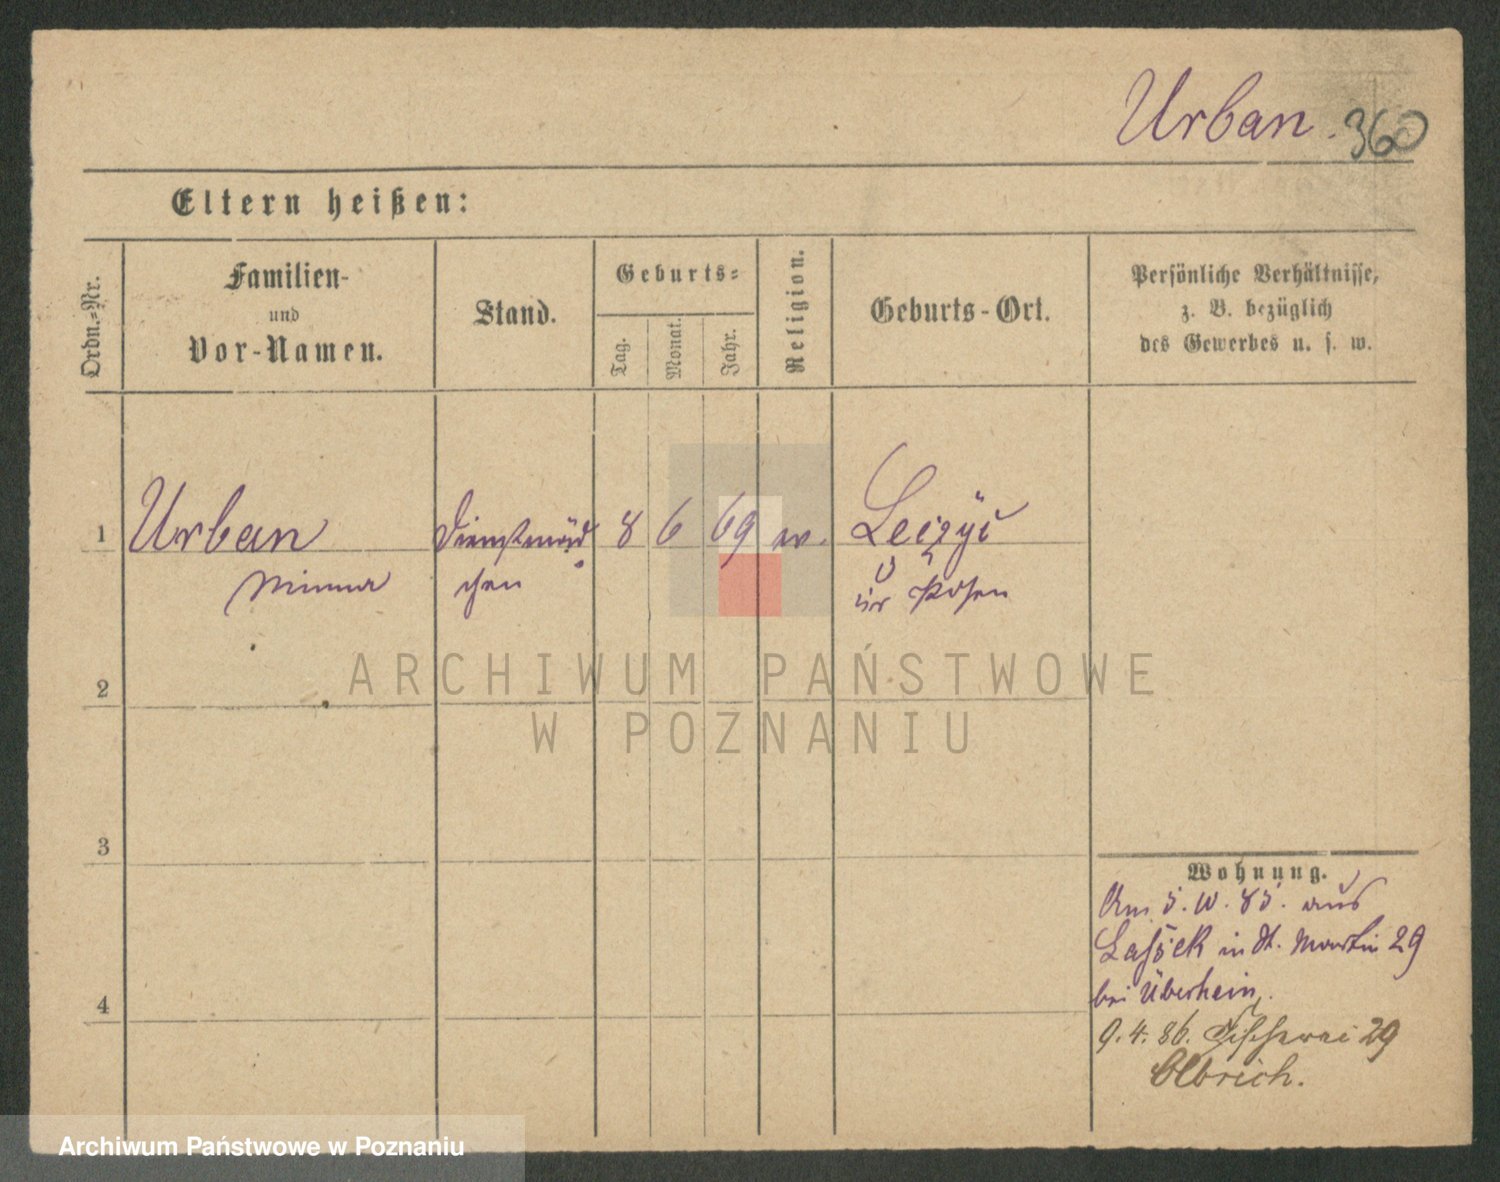 Urban. 360
Eltern heißen:
Ordn.=Nr.
Familien-
und
Vor-Namen.
Stand.
Geburts=
Tag.
Monat.
Jahr.
Religion.
Geburts-Ort.
Persönliche Verhältnisse,
z. B. bezüglich
des Gewerbes u. s. w.
1
Urban
Minna
Dienstmäd
chen
8
6
69
ev.
Posen
2
3
4
Wohnung.
Am 5. 10. 85. aus
in St. Martin 29
bei Überhein.
9. 4. 86. Fischerei 29
Olbrich.
ARCHIWUM PAŃSTWOWE
W POZNANIU
Archiwum Państwowe w Poznaniu